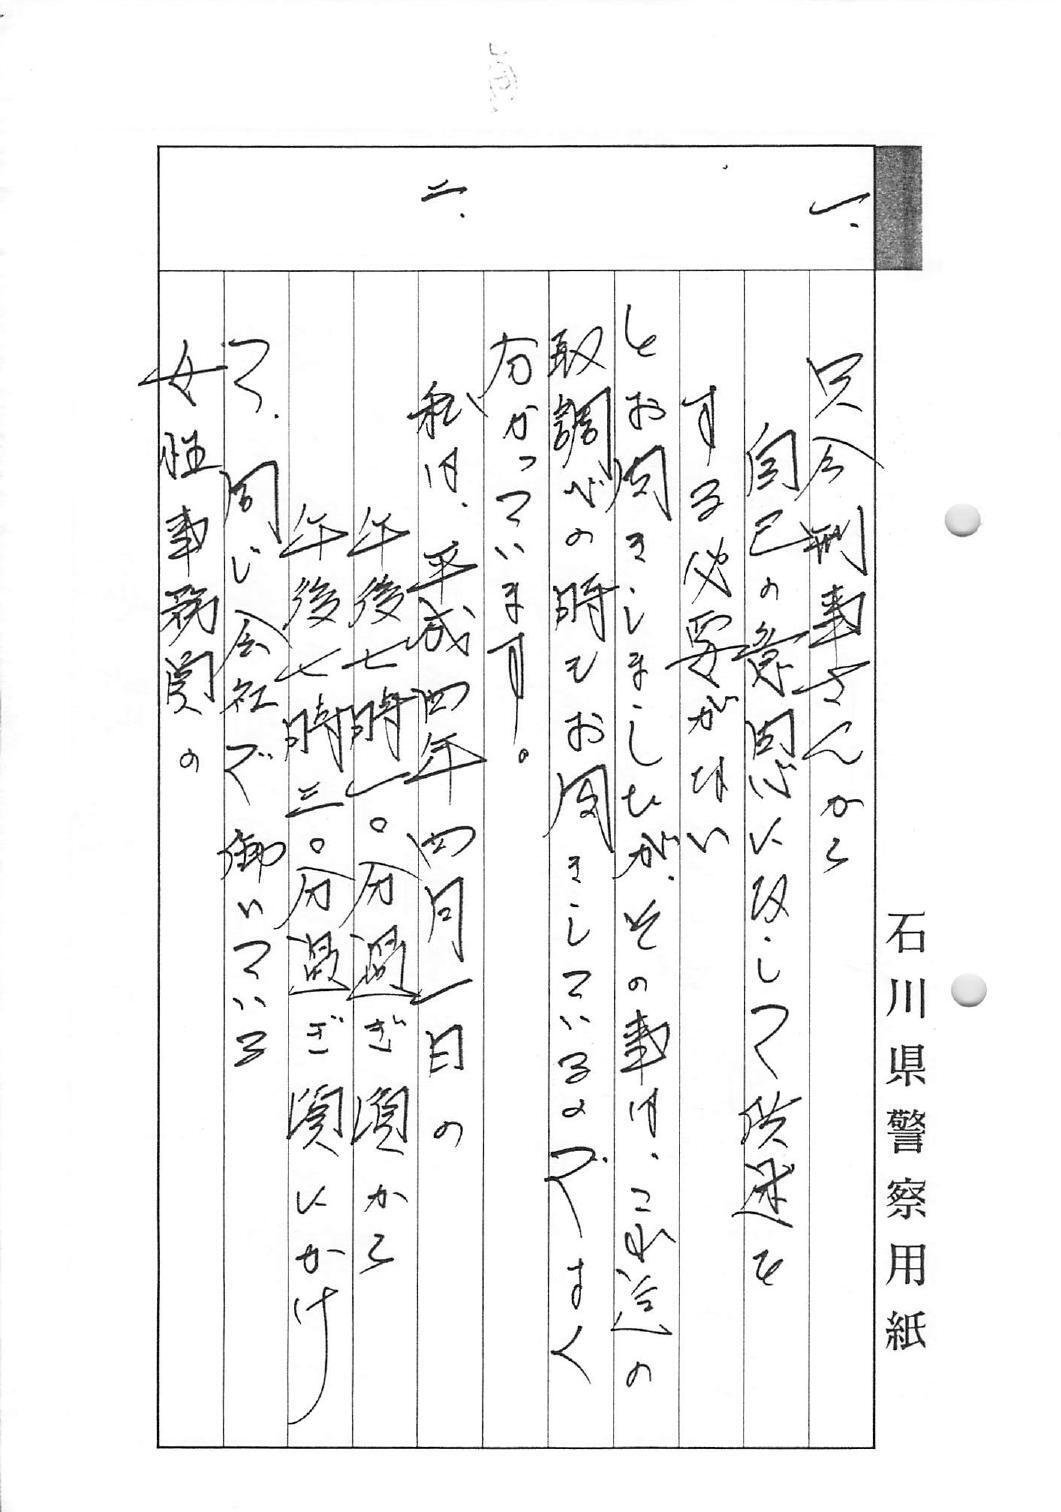 一、
只今刑事さんから
自己の意思に反して供述を
する必要がない
とお聞きしましたが、その事は、これ迄の
取調べの時もお聞きしているのでよく
分かっています。
二、
私は、平成四年四月一日の
午後七時一〇分過ぎ頃から
午後七時三〇分過ぎ頃にかけ
て、同じ会社で働いている
女性事務員の
石川県警察用紙